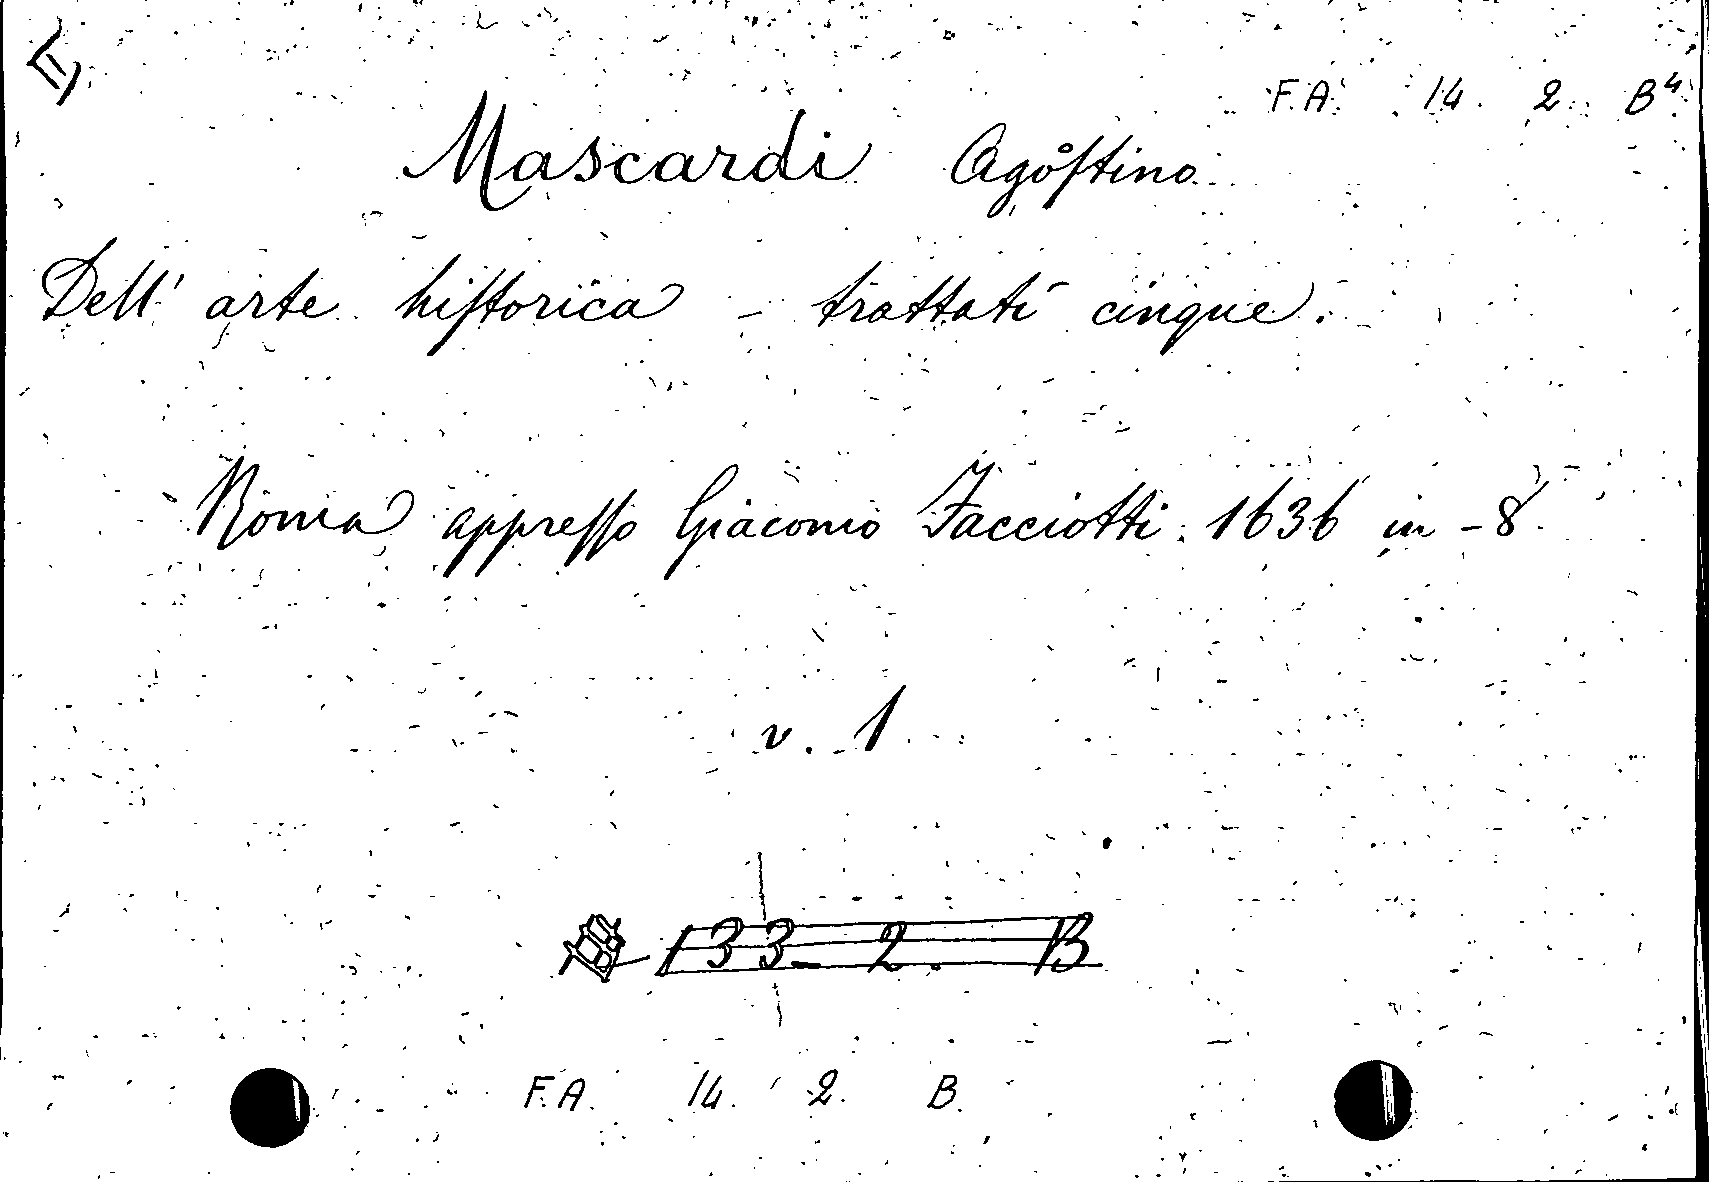 F.A. 14. 2. B4
Mascardi Agoſtino
Dell' arte hiſtorica - trattati cinque.
Roma appreſſo Giacomo Facciotti. 1636 in-8.
v. 1
133- 2. B
F.A. 14. 2. B.